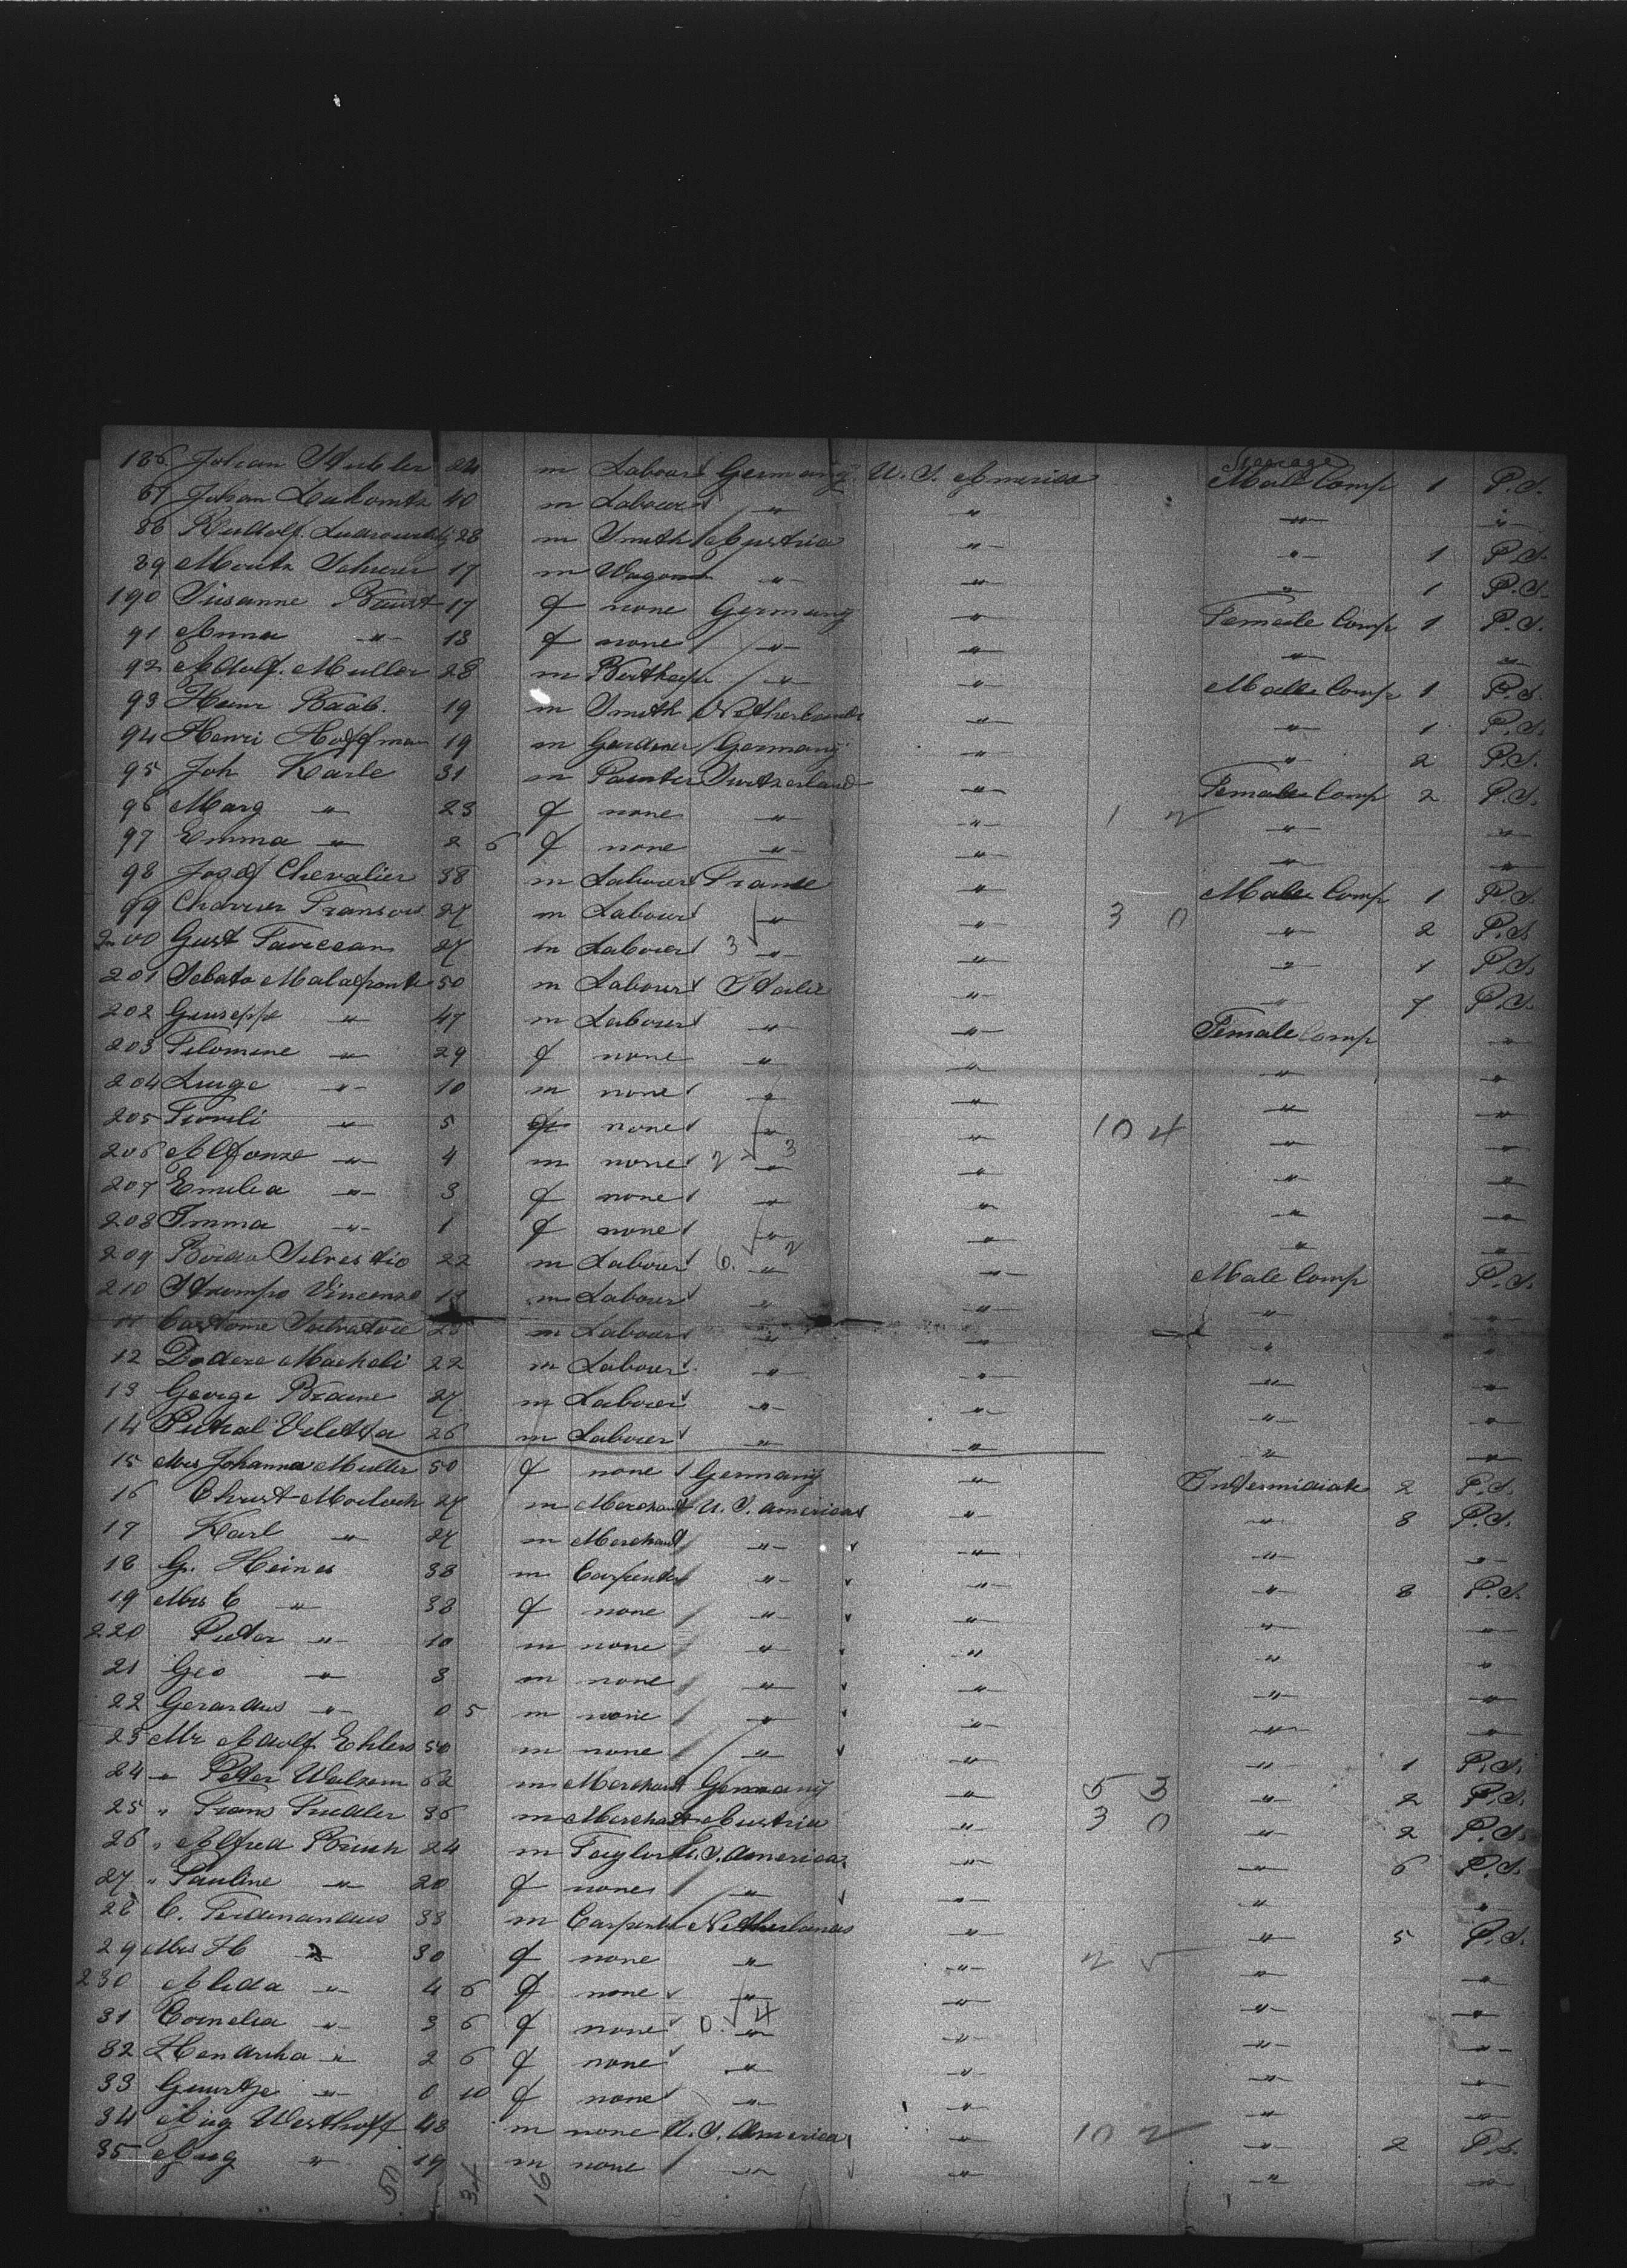 186 Johan Stubler 24 m Labour Germany U. S. America Steerage Male Comp 1 P.S.
87 Johan 40 m Labour " " " "
88 Rudolf 28 m Smith Austria " " 1 P.S.
89 Moritz Scherer 17 m " " " 1 P.S.
190 Susanne Baust 17 f none Germany " Female Comp 1 P.S.
91 Anna " 13 f none " " " "
92 Adolf. Muller 28 m " " Malle Comp 1 P.S.
93 Heinr Baab. 19 m Smith Netherlands " " 1 P.S.
94 Henri Hoffman 19 m Gardener Germany " " 2 P.S.
95 Joh Karle 31 m Painter Switzerland " Female Comp 2 P.S.
96 Marg " 23 f none " " 1 2 " "
97 Emma " 2 6 f none " " " "
98 Josef Chevalier 38 m Labour France " Malle Comp 1 P.S.
99 Charrier Fransois 27 m Labour " " 3 0 " 2 P.S.
200 Gust 27 m Labour 3 " " " 1 P.S.
201 Sebato Malafronte 50 m Labour Italie " " 7 P.S.
202 Giuseppe " 47 m Labour " " Female Comp "
203 Filomene " 29 f none " " " "
204 Luige " 10 m none " " " "
205 " 5 f none " " 10 4 " "
206 Alfonze " 4 m none 2 " 3 " " "
207 Emilia " 3 f none " " " "
208 Imma " 1 f none " " " "
209 Silvestio 22 m Labour 6. " 2 " Male Comp P.S.
210 Vincenzo m Labour " " " "
11 Salvatore m Labour " " " "
12 Dodere Macheli 22 m Labour " " " "
13 George Braune 27 m Labour " " " "
14 Veletta 26 m Labour " " " "
15 Mrs Johanna Muller 50 f none Germany " Intermidiate 2 P.S.
16 Christ Morloch 27 m Merchant U. S. America " " 8 P.S.
17 Karl " 27 m Merchant " " " "
18 G. Heines 38 m Carpenter " " " 8 P.S.
19 Mrs C " 38 f none " " " "
220 Pieter " 10 m none " " " "
21 Geo " 8 m none " " " "
22 Gerardus " 0 5 m none " " " "
23 Mr Adolf Ehlers 50 m none " " " 1 P.S.
24 " Peter Walzem 62 m Merchant Germany " 5 3 " 2 P.S.
25 " Frans 36 m Merchant Austria " 3 0 " 2 P.S.
26 " Alfred Brush 24 m Taylor U. S. America " " 6 P.S.
27 " Pauline " 20 f none " " " "
28 C. Ferdinandus 33 m Carpenter Netherlands " " 5 P.S.
29 Mrs H " 30 f none " " 2 5 " "
230 Alida " 4 6 f none " " " "
31 Cornelia " 3 6 f none 0. " 4 " " "
32 Hendrika " 2 6 f none " " " "
33 Geertje " 0 10 f none " " " "
34 Aug Westhoff 48 m none U. S. America " 10 2 " 2 P.S.
35 Aug " 19 m none " " " "
50 34 16